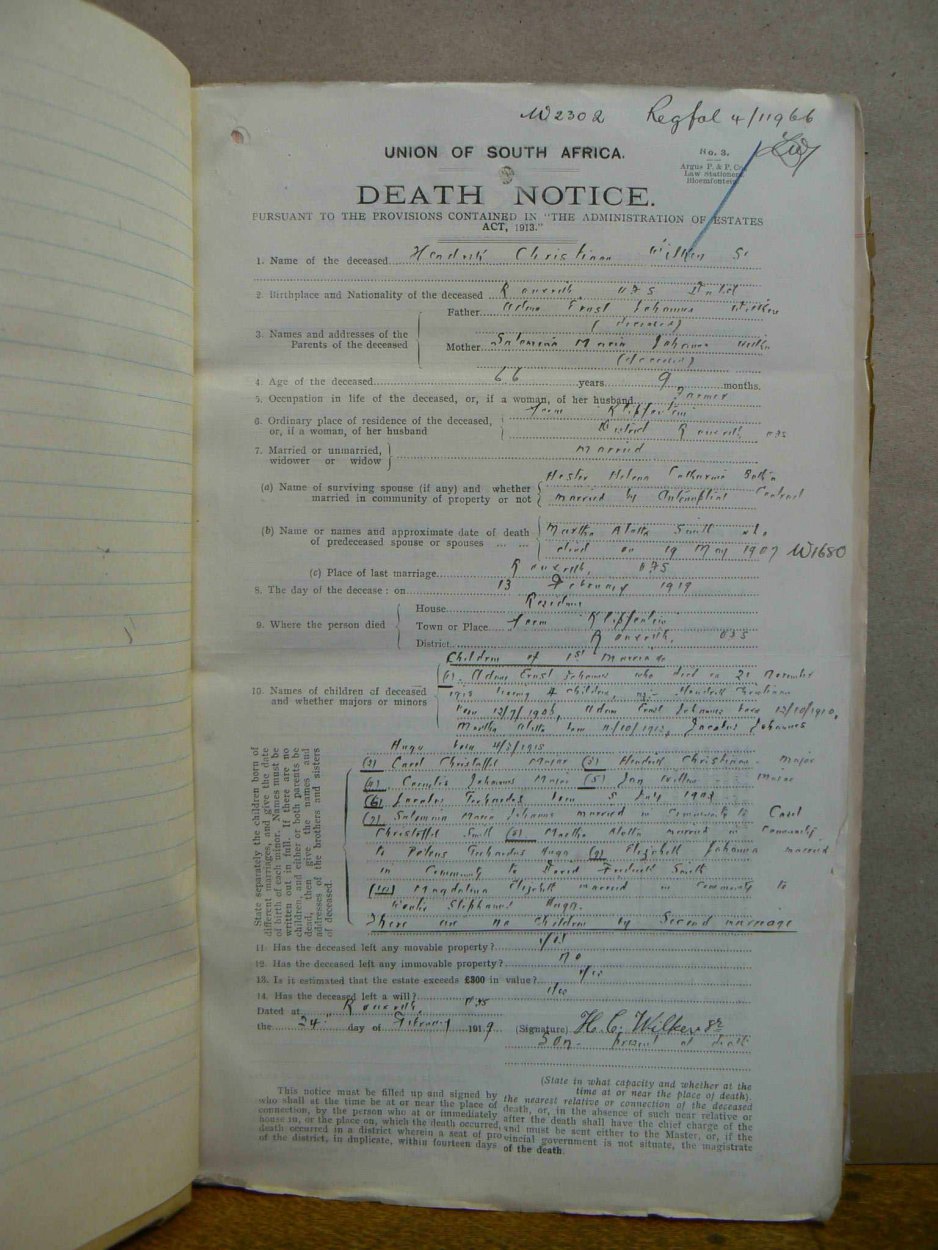 W2302 Regfol 4/11966
UNION OF SOUTH AFRICA.
No. 3.
Argus P. & P. Co.
Law Stationers
Bloemfontein.
DEATH NOTICE.
PURSUANT TO THE PROVISIONS CONTAINED IN "THE ADMINISTRATION OF ESTATES
ACT, 1913."
1. Name of the deceased Hendrik Christiaan Wilken Sr
2. Birthplace and Nationality of the deceased Rouxville OFS Dutch
3. Names and addresses of the Parents of the deceased
Father Adam Ernst Johannes Wilken
(deceased)
Mother Salomina Maria Johanna Wilken
(deceased)
4. Age of the deceased 66 years 9 months.
5. Occupation in life of the deceased, or, if a woman, of her husband Farmer
6. Ordinary place of residence of the deceased, Farm Klipfontein
or, if a woman, of her husband District Rouxville OFS
7. Married or unmarried, widower or widow married
(a) Name of surviving spouse (if any) and whether Hester Helena Catharina Botha
married in community of property or not married by Antenuptial Contract
(b) Name or names and approximate date of death Martha Aletta Smith who
of predeceased spouse or spouses ... ... died on 19 May 1907 W1680
(c) Place of last marriage Rouxville, OFS
8. The day of the decease: on 13 February 1919
9. Where the person died
House Residence
Town or Place Farm Klipfontein
District Rouxville, OFS
10. Names of children of deceased and whether majors or minors
Children of 1st Marriage
(1) Adam Ernst Johannes who died on 21 November
1918 leaving 4 children, viz:- Hendrik Christiaan
born 13/7/1908, Adam Ernst Johannes born 12/10/1910,
Martha Aletta born 11/10/1912, Jacobus Johannes
Hugo born 4/5/1915
(2) Carel Christoffel Major (3) Hendrik Christiaan Major
(4) Cornelis Johannes Major (5) Jan Willem Major
(6) Jacobus Gerhardus born 5 July 1903
(7) Salomina Maria Johanna married in Community to Carel
Christoffel Smith (8) Martha Aletta married in Community
to Petrus Gerhardus Hugo (9) Elizabeth Johanna married
in Community to David Frederik Smith
(10) Magdalena Elizabeth married in Community to
Stephanus Hugo.
There are no children by Second marriage
State separately the children born of
different marriages, and give the date
of birth of each minor. Names must be
written out in full. If there are no
children, and either or both parents be
dead, then give the names and
addresses of the brothers and sisters
of deceased.
11. Has the deceased left any movable property? Yes
12. Has the deceased left any immovable property? no
13. Is it estimated that the estate exceeds £300 in value? Yes
14. Has the deceased left a will? Yes
Dated at Rouxville, OFS
the 24th day of February 1919 (Signature) H. C. Wilken Sr
Son - present at death
(State in what capacity and whether at the
time at or near the place of death).
This notice must be filled up and signed by the nearest relative or connection of the deceased
who shall at the time be at or near the place of death, or, in the absence of such near relative or
connection, by the person who at or immediately after the death shall have the chief charge of the
house in, or the place on, which the death occurred, and must be sent either to the Master, or, if the
death occurred in a district wherein a seat of provincial government is not situate, the magistrate
of the district, in duplicate, within fourteen days of the death.